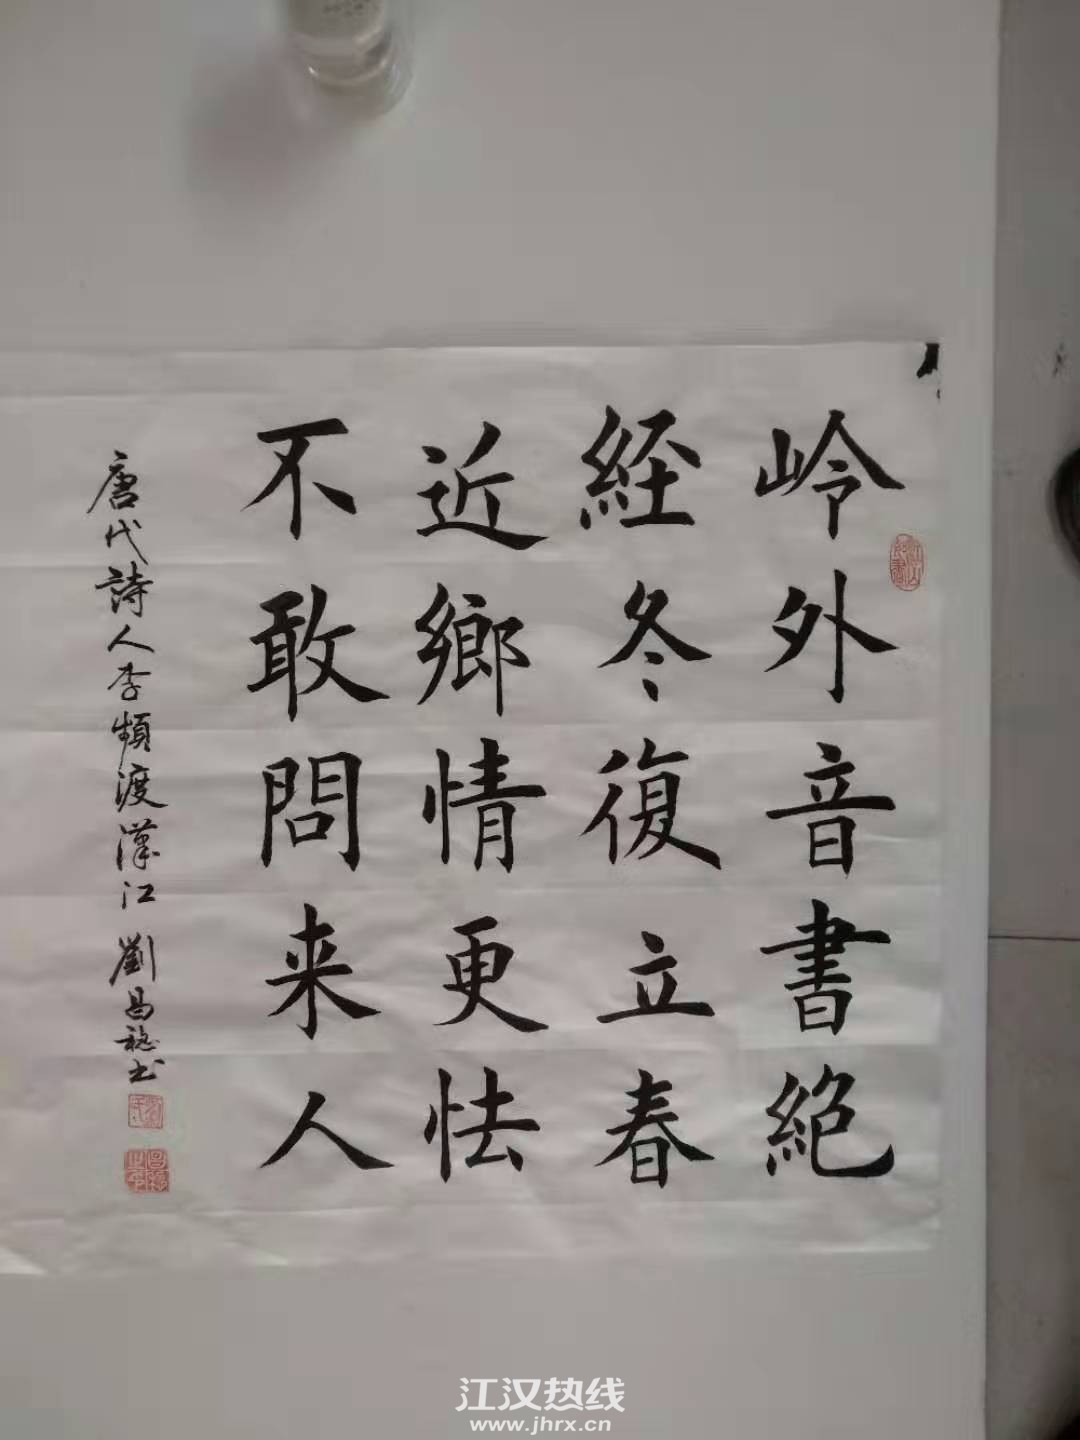 岭外音書絶
経冬復立春
近鄉情更怯
不敢問来人
唐代詩人李頻渡漢江 劉昌
书
江汉热线
www.jhrx.cn